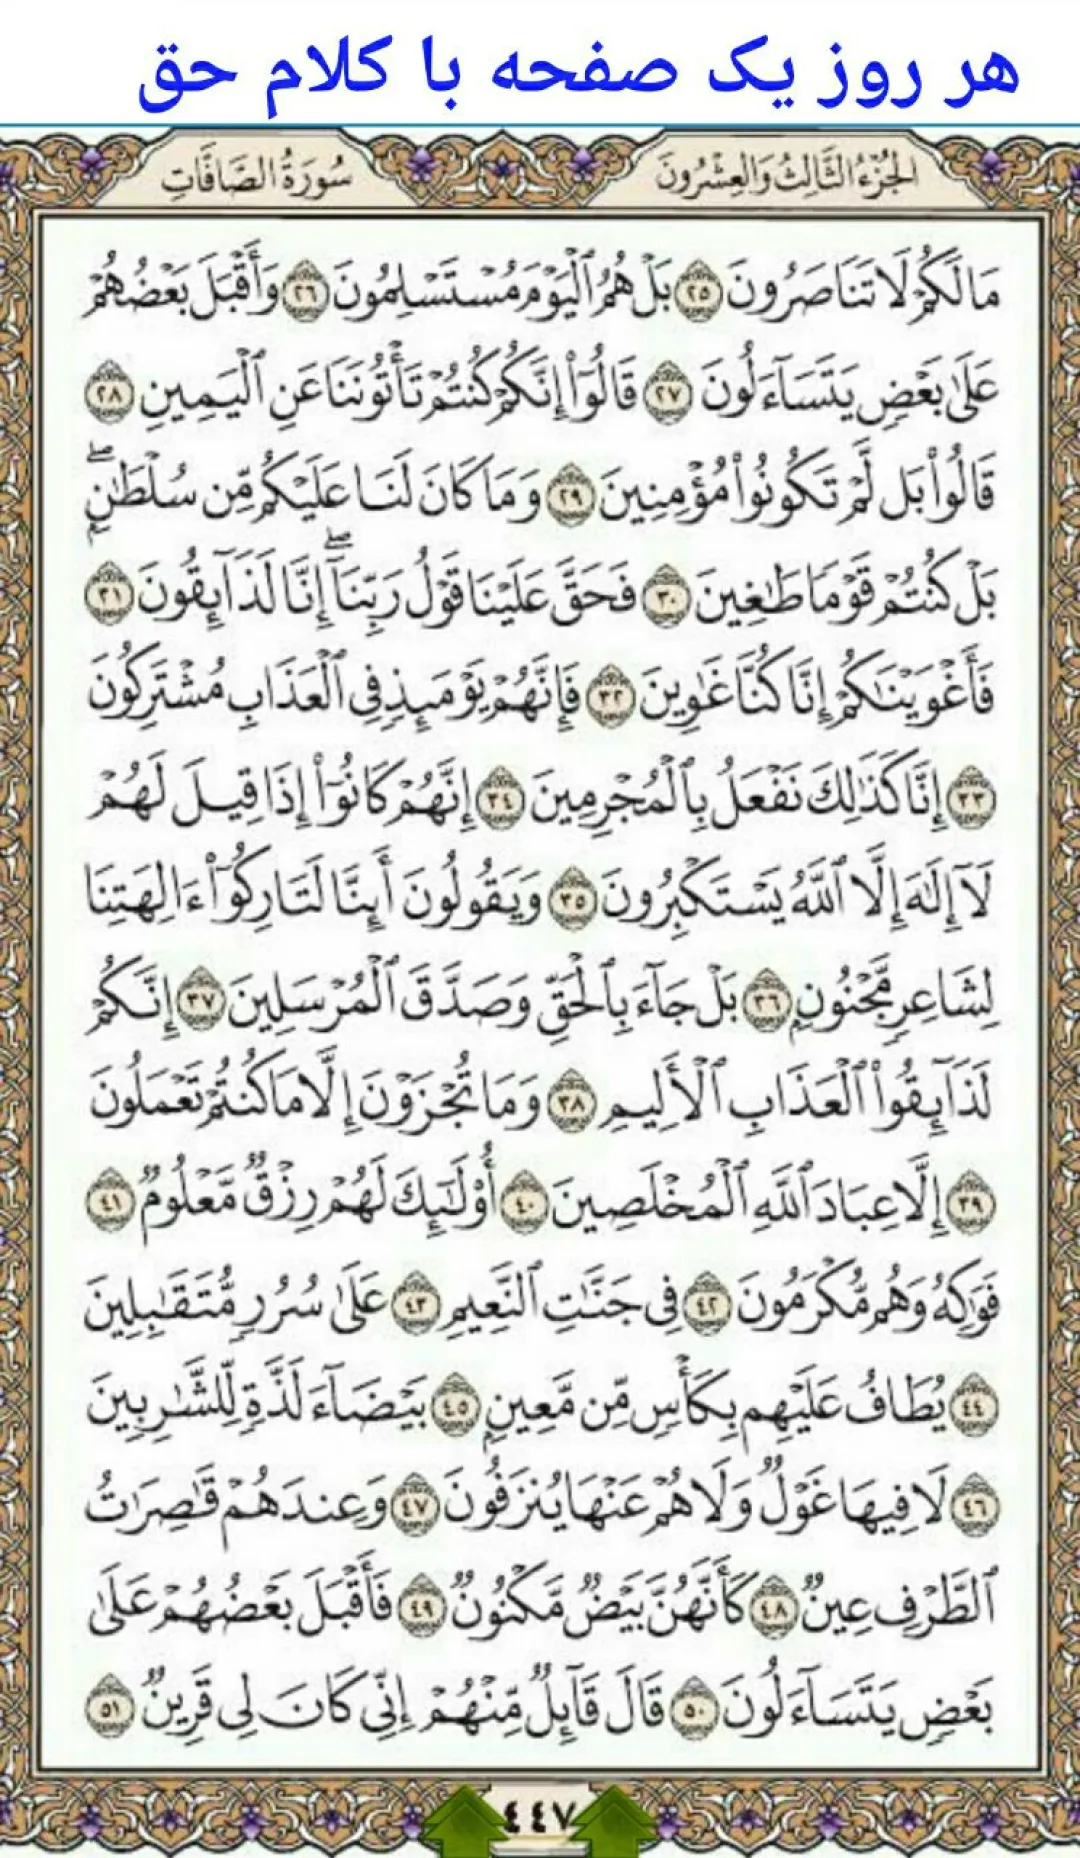 هر روز یک صفحه با کلام حق
الجُزْءُ الثَّالِثُ وَالْعِشْرُونَ
سُورَةُ الصَّافَّاتِ
مَا لَكُمْ لَا تَنَاصَرُونَ ٢٥ بَلْ هُمُ ٱلْيَوْمَ مُسْتَسْلِمُونَ ٢٦ وَأَقْبَلَ بَعْضُهُمْ
عَلَىٰ بَعْضٍ يَتَسَآءَلُونَ ٢٧ قَالُوٓا۟ إِنَّكُمْ كُنتُمْ تَأْتُونَنَا عَنِ ٱلْيَمِينِ ٢٨
قَالُوا۟ بَل لَّمْ تَكُونُوا۟ مُؤْمِنِينَ ٢٩ وَمَا كَانَ لَنَا عَلَيْكُم مِّن سُلْطَٰنٍۭ ۖ
بَلْ كُنتُمْ قَوْمًا طَٰغِينَ ٣٠ فَحَقَّ عَلَيْنَا قَوْلُ رَبِّنَآ ۖ إِنَّا لَذَآئِقُونَ ٣١
فَأَغْوَيْنَٰكُمْ إِنَّا كُنَّا غَٰوِينَ ٣٢ فَإِنَّهُمْ يَوْمَئِذٍ فِى ٱلْعَذَابِ مُشْتَرِكُونَ
٣٣ إِنَّا كَذَٰلِكَ نَفْعَلُ بِٱلْمُجْرِمِينَ ٣٤ إِنَّهُمْ كَانُوٓا۟ إِذَا قِيلَ لَهُمْ
لَآ إِلَٰهَ إِلَّا ٱللَّهُ يَسْتَكْبِرُونَ ٣٥ وَيَقُولُونَ أَئِنَّا لَتَارِكُوٓا۟ ءَالِهَتِنَا
لِشَاعِرٍ مَّجْنُونٍۭ ٣٦ بَلْ جَآءَ بِٱلْحَقِّ وَصَدَّقَ ٱلْمُرْسَلِينَ ٣٧ إِنَّكُمْ
لَذَآئِقُوا۟ ٱلْعَذَابِ ٱلْأَلِيمِ ٣٨ وَمَا تُجْزَوْنَ إِلَّا مَا كُنتُمْ تَعْمَلُونَ
٣٩ إِلَّا عِبَادَ ٱللَّهِ ٱلْمُخْلَصِينَ ٤٠ أُو۟لَٰٓئِكَ لَهُمْ رِزْقٌ مَّعْلُومٌ ٤١
فَوَٰكِهُ وَهُم مُّكْرَمُونَ ٤٢ فِى جَنَّٰتِ ٱلنَّعِيمِ ٤٣ عَلَىٰ سُرُرٍ مُّتَقَٰبِلِينَ
٤٤ يُطَافُ عَلَيْهِم بِكَأْسٍ مِّن مَّعِينٍۭ ٤٥ بَيْضَآءَ لَذَّةٍ لِّلشَّٰرِبِينَ
٤٦ لَا فِيهَا غَوْلٌ وَلَا هُمْ عَنْهَا يُنزَفُونَ ٤٧ وَعِندَهُمْ قَٰصِرَٰتُ
ٱلطَّرْفِ عِينٌ ٤٨ كَأَنَّهُنَّ بَيْضٌ مَّكْنُونٌ ٤٩ فَأَقْبَلَ بَعْضُهُمْ عَلَىٰ
بَعْضٍ يَتَسَآءَلُونَ ٥٠ قَالَ قَآئِلٌ مِّنْهُمْ إِنِّى كَانَ لِى قَرِينٌ ٥١
٤٤٧